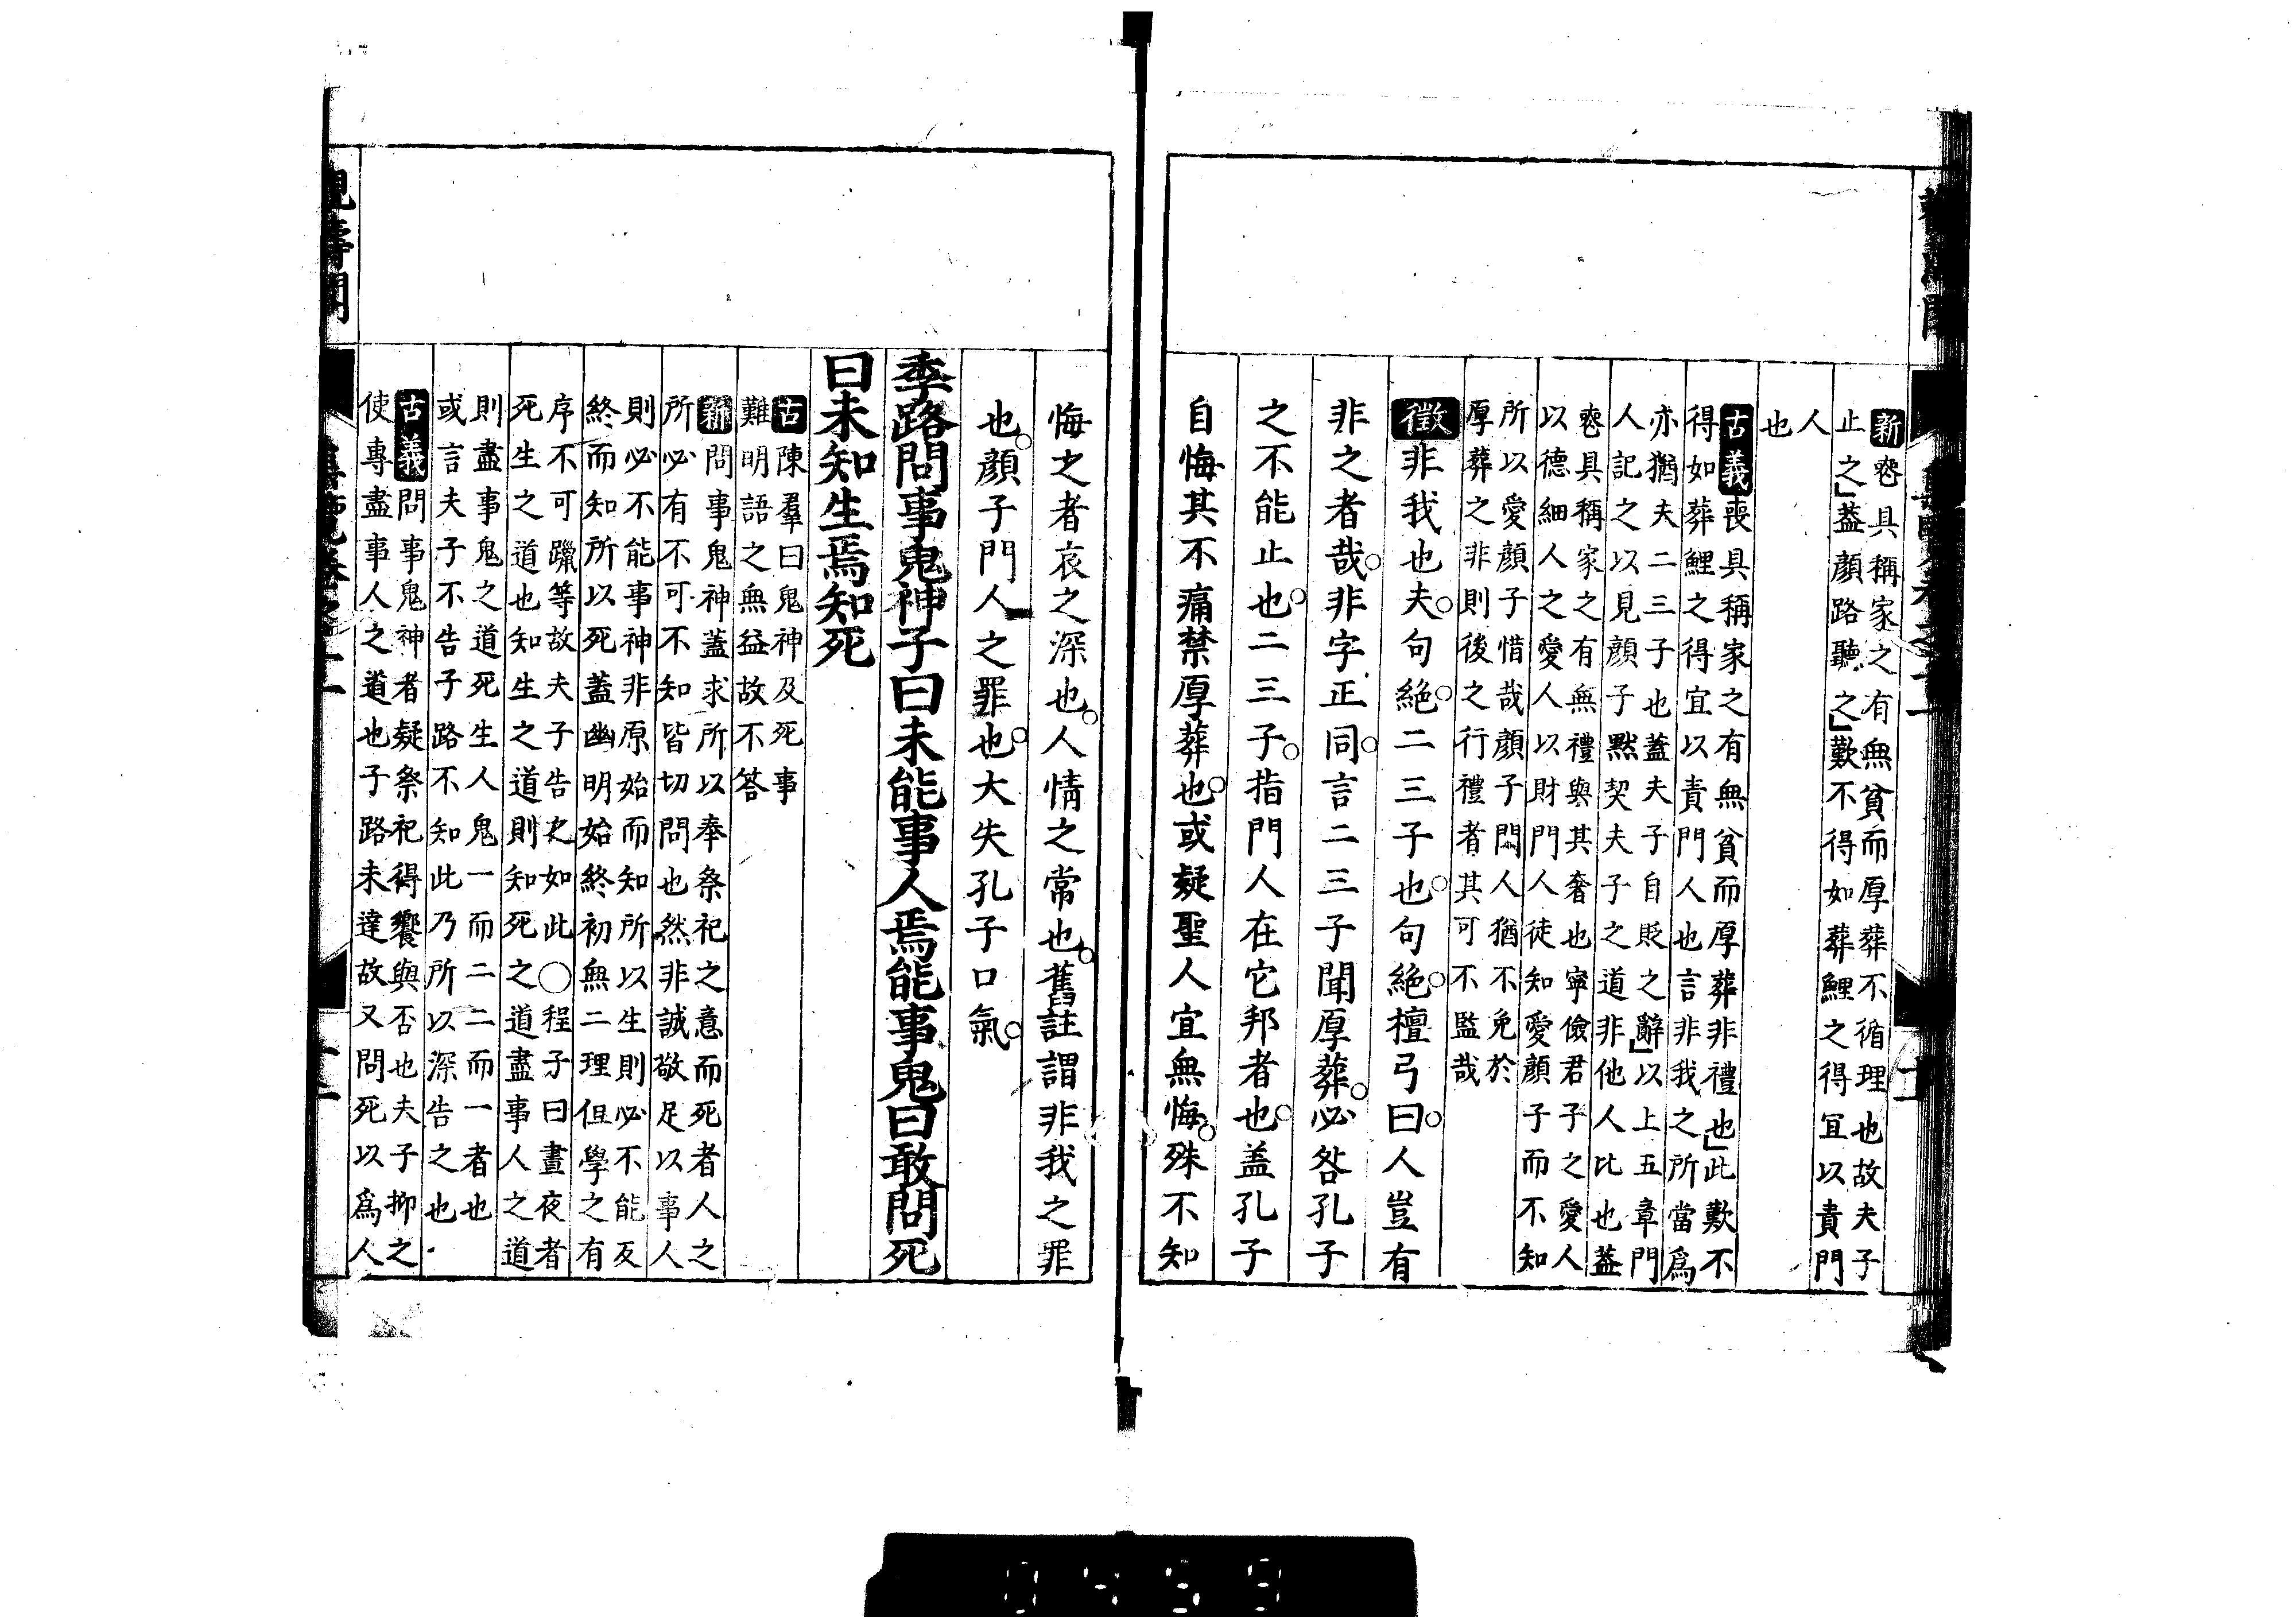 新喪具稱家之有無貧而厚葬不循理也故夫子
止之」蓋顔路聽之」歎不得如葬鯉之得宜以責門
人
也
古義喪具稱家之有無貧而厚葬非禮也」此歎不
得如葬鯉之得宜以責門人也言非我之所當爲
亦猶夫二三子也蓋夫子自貶之辭」以上五章門
人記之以見顔子黙契夫子之道非他人比也蓋
喪具稱家之有無禮與其奢也寧儉君子之愛人
以德細人之愛人以財門人徒知愛顔子而不知
所以愛顔子惜哉顔子門人猶不免於
厚葬之非則後之行禮者其可不監哉
徵非我也夫句絶二三子也句絶檀弓曰人豈有
非之者哉非字正同言二三子聞厚葬必咎孔子
之不能止也二三子指門人在它邦者也蓋孔子
自悔其不痛禁厚葬也或疑聖人宜無悔殊不知
悔之者哀之深也人情之常也舊註謂非我之罪
也顔子門人之罪也大失孔子口氣
季路問事鬼神子曰未能事人焉能事鬼曰敢問死
曰未知生焉知死
古陳羣曰鬼神及死事
難明語之無益故不答
新問事鬼神蓋求所以奉祭祀之意而死者人之
所必有不可不知皆切問也然非誠敬足以事人
則必不能事神非原始而知所以生則必不能反
終而知所以死蓋幽明始終初無二理但學之有
序不可躐等故夫子告之如此○程子曰晝夜者
死生之道也知生之道則知死之道盡事人之道
則盡事鬼之道死生人鬼一而二二而一者也
或言夫子不告子路不知此乃所以深告之也
古義問事鬼神者疑祭祀得饗與否也夫子抑之
使專盡事人之道也子路未達故又問死以爲人
0459